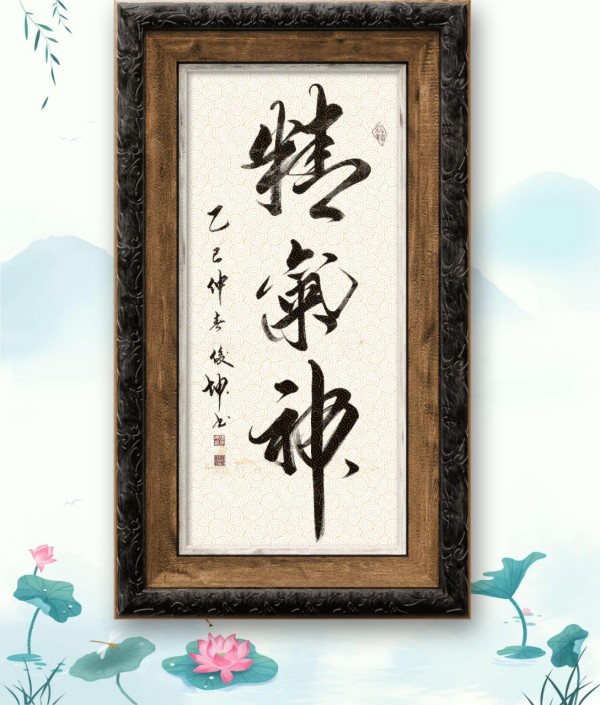 精氣神
乙巳仲春俊坤书